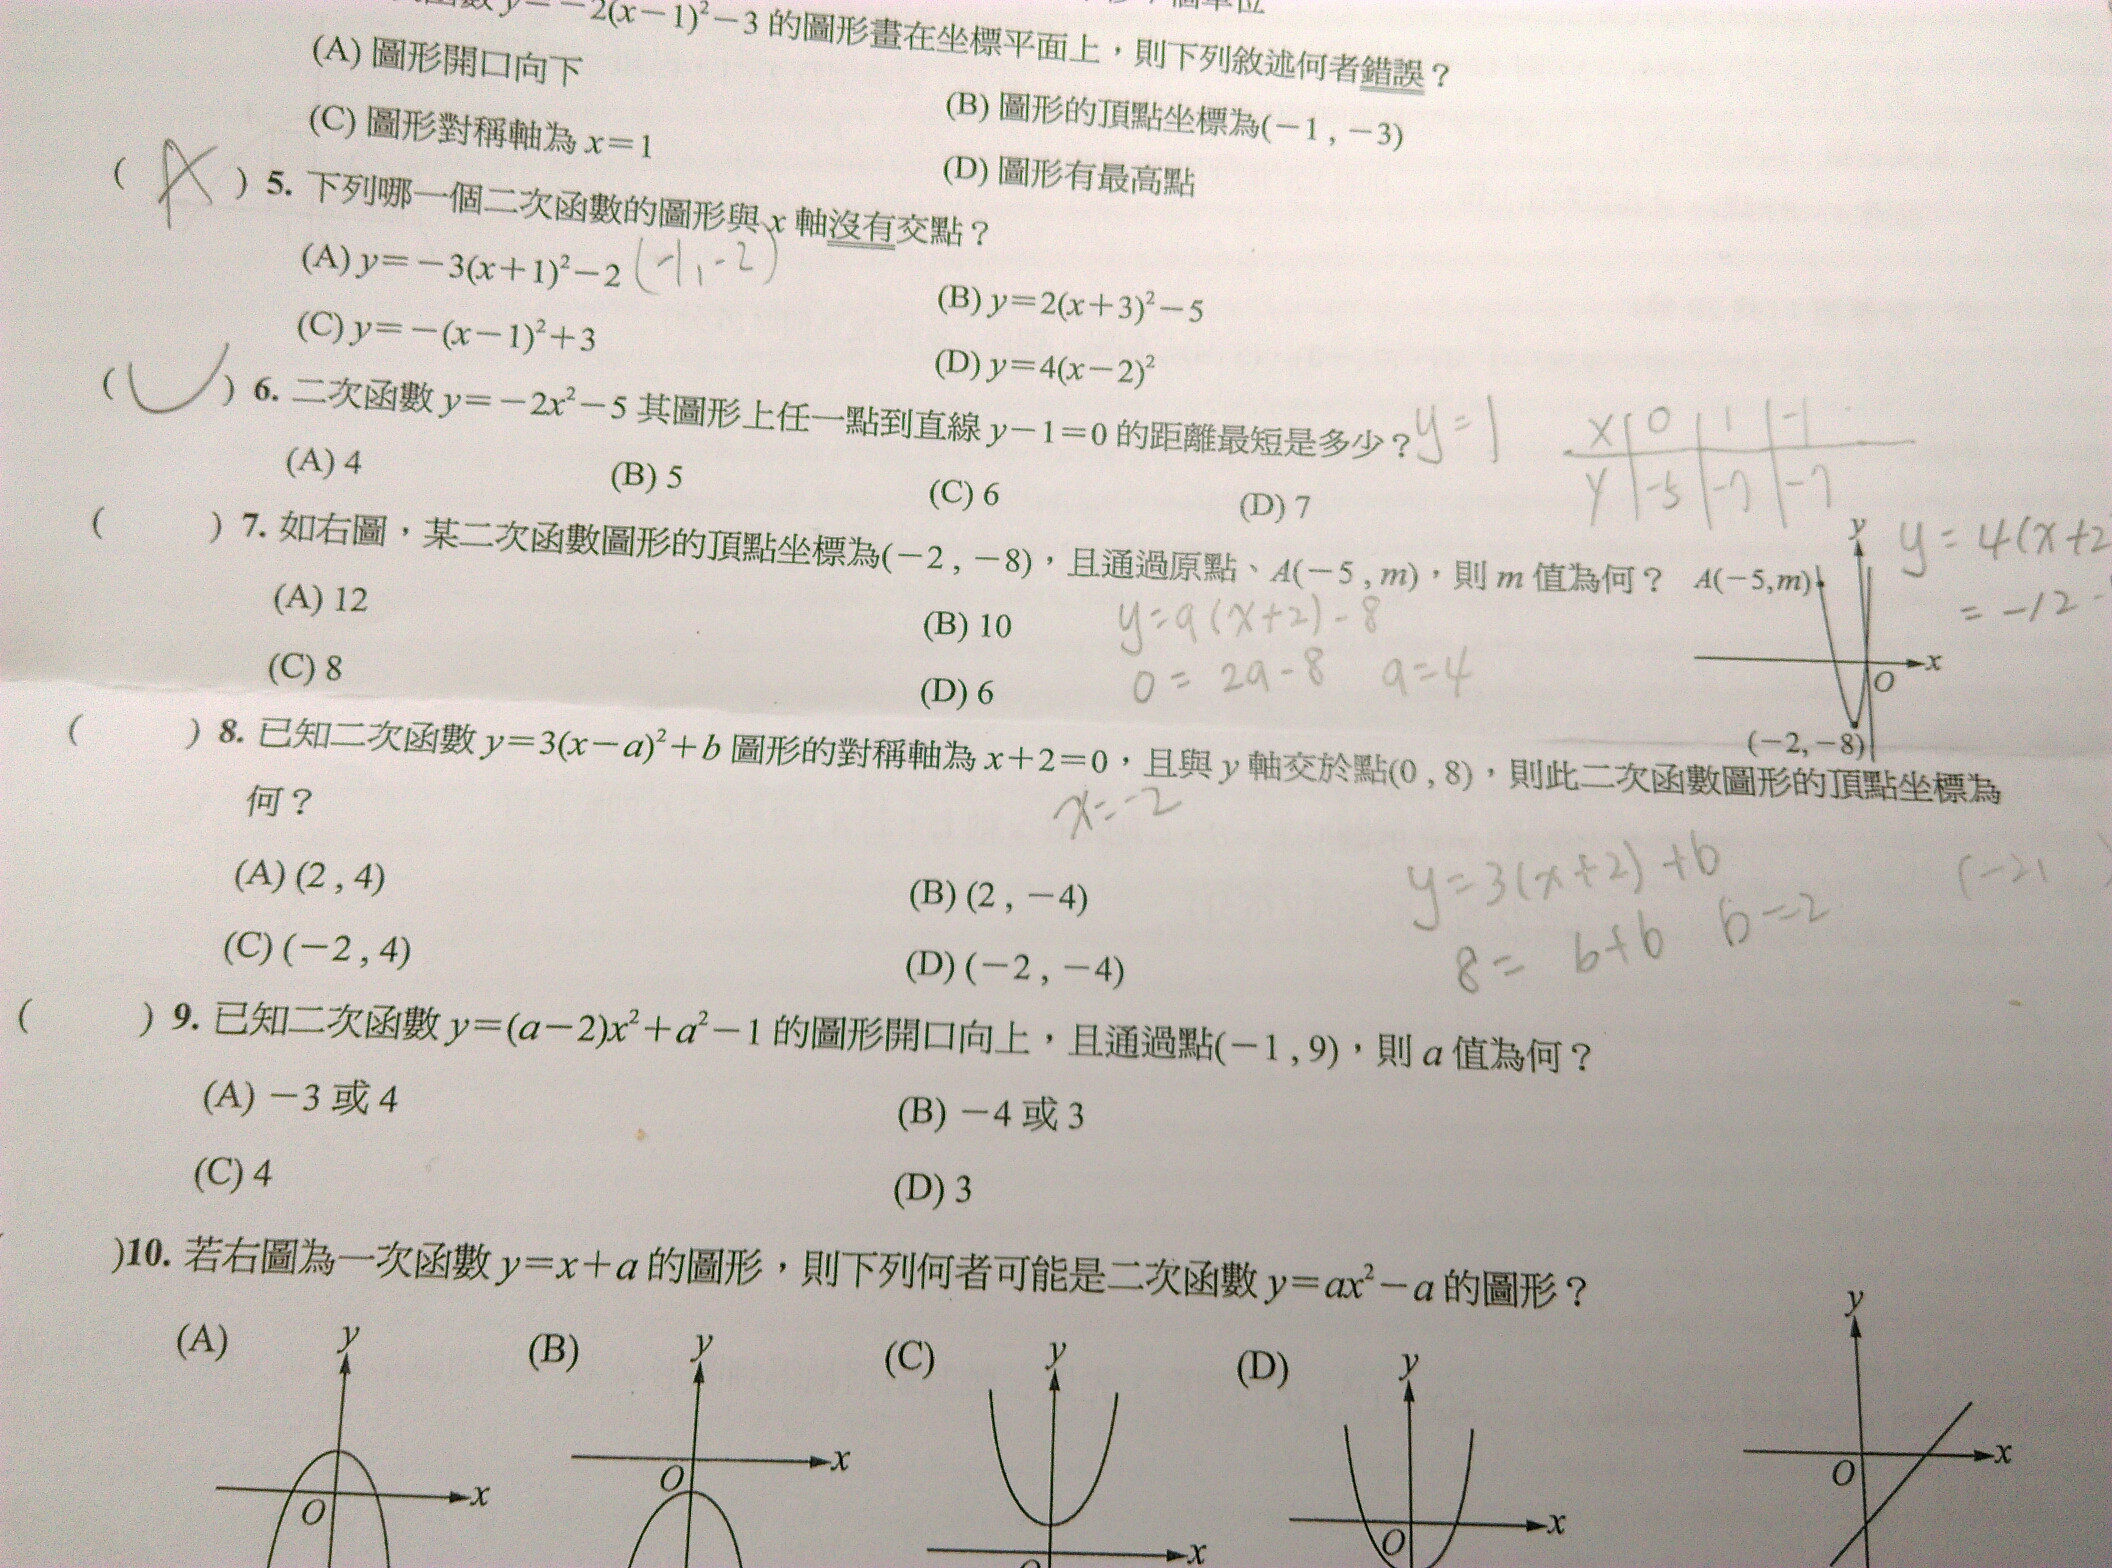 y=-2(x-1)²-3 的圖形畫在坐標平面上，則下列敘述何者錯誤？
(A) 圖形開口向下
(B) 圖形的頂點坐標為(-1 , -3)
(C) 圖形對稱軸為 x=1
(D) 圖形有最高點
( A ) 5. 下列哪一個二次函數的圖形與 x 軸沒有交點？
(A) y=-3(x+1)²-2 (-1, -2)
(B) y=2(x+3)²-5
(C) y=-(x-1)²+3
(D) y=4(x-2)²
( ) 6. 二次函數 y=-2x²-5 其圖形上任一點到直線 y-1=0 的距離最短是多少？ y=1
x 0 1 -1
y -5 -7 -7
(A) 4 (B) 5 (C) 6 (D) 7
( ) 7. 如右圖，某二次函數圖形的頂點坐標為(-2 , -8)，且通過原點、A(-5 , m)，則 m 值為何？
(A) 12 (B) 10
(C) 8 (D) 6
y=a(x+2)-8
0= 2a-8 a=4
y A(-5,m) x O (-2,-8)
y=4(x+2
= -12
( ) 8. 已知二次函數 y=3(x-a)²+b 圖形的對稱軸為 x+2=0，且與 y 軸交於點(0 , 8)，則此二次函數圖形的頂點坐標為
何？
x=-2
(A) (2 , 4) (B) (2 , -4)
(C) (-2 , 4) (D) (-2 , -4)
y=3(x+2)+b
8= 6+b b=2
(-2, )
( ) 9. 已知二次函數 y=(a-2)x²+a²-1 的圖形開口向上，且通過點(-1 , 9)，則 a 值為何？
(A) -3 或 4 (B) -4 或 3
(C) 4 (D) 3
)10. 若右圖為一次函數 y=x+a 的圖形，則下列何者可能是二次函數 y=ax²-a 的圖形？
(A) y O x
(B) y O x
(C) y x
(D) y O x
y O x